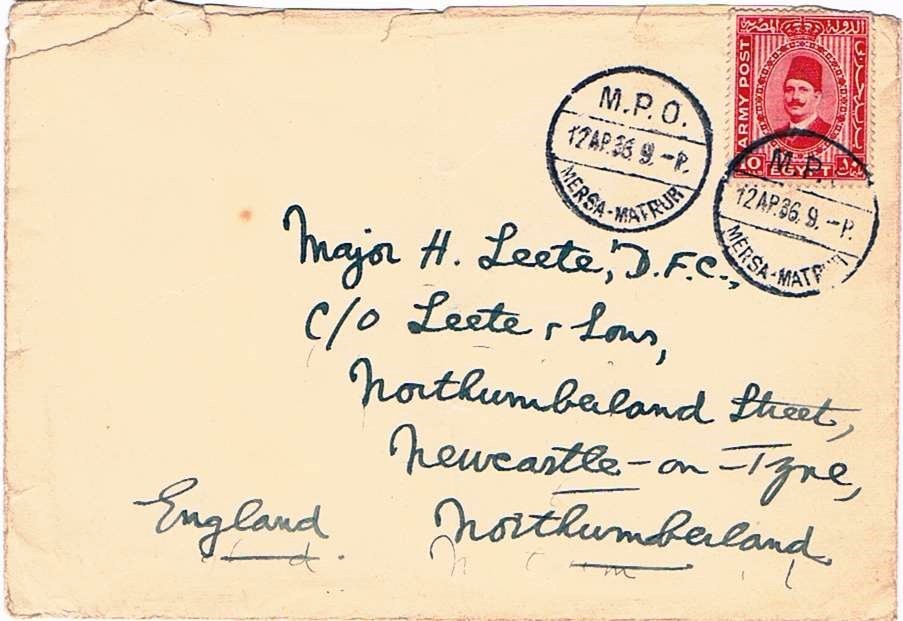 الدولة المصرية
ARMY POST
10 EGYPT
M.P.O.
12 AP.36. 9.-P.
MERSA-MATRUH
M.P.
12 AP.36. 9.-P.
MERSA-MATRUH
Major H. Leete, D.F.C.,
C/O Leete & Sons,
Northumberland Street,
Newcastle-on-Tyne,
Northumberland
England